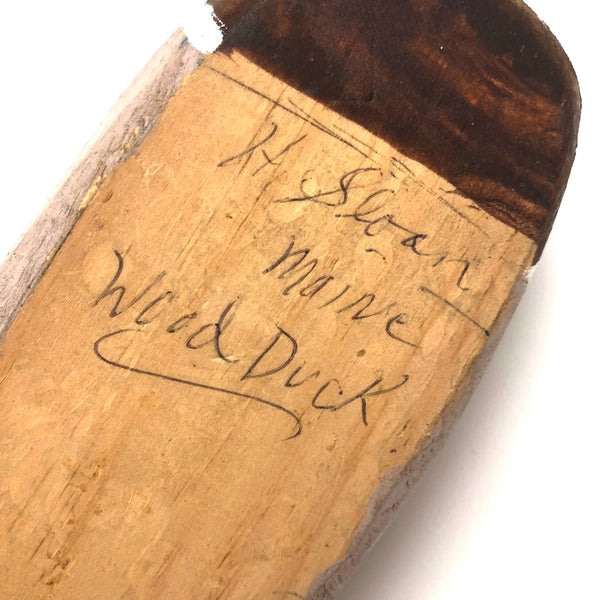 H Sloan
Maine
Wood Duck